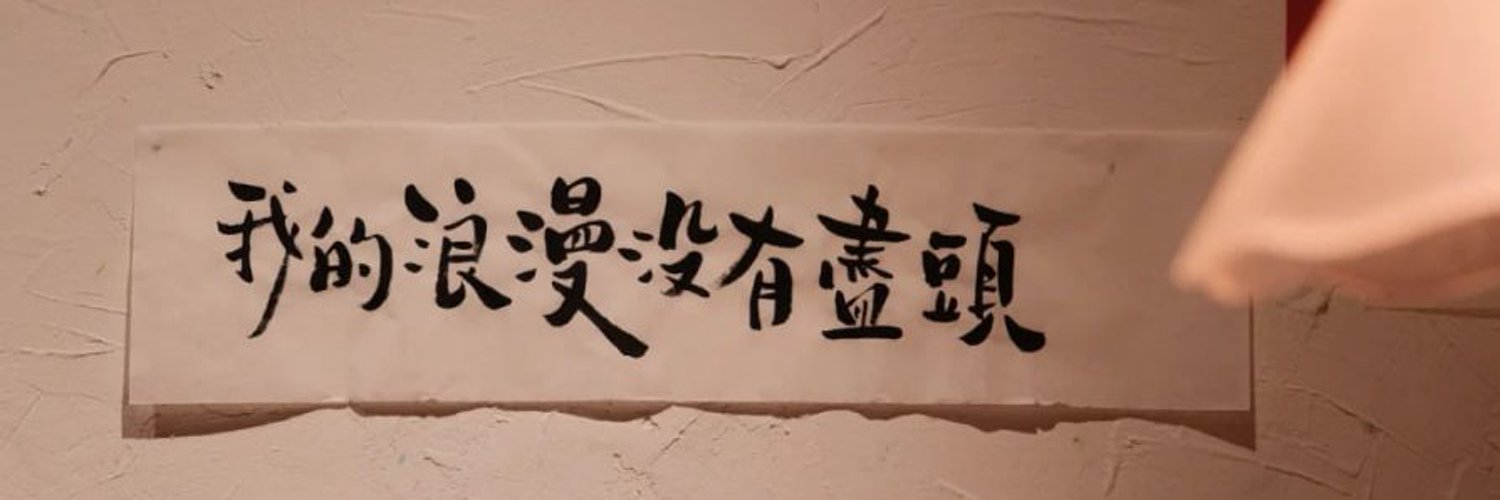 我的浪漫没有盡頭